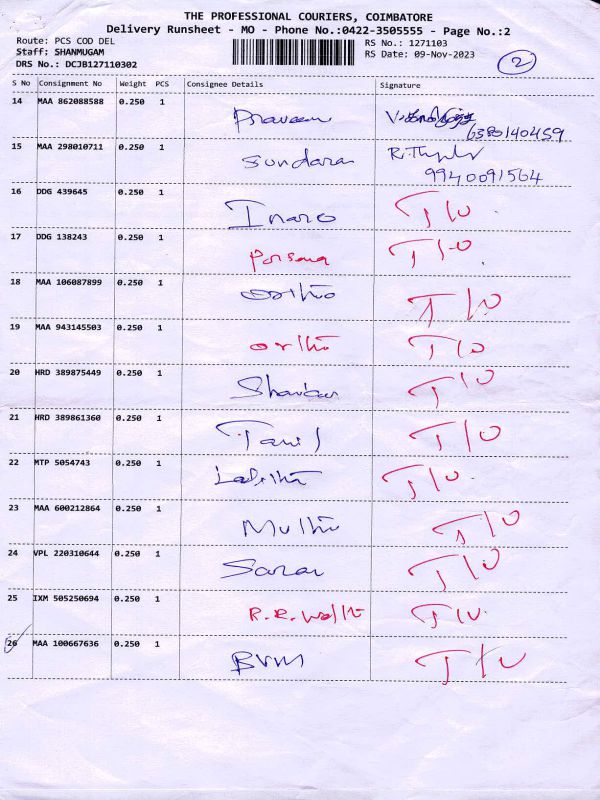 THE PROFESSIONAL COURIERS, COIMBATORE
Delivery Runsheet - MO - Phone No.:0422-3505555 - Page No.:2
Route: PCS COD DEL
Staff: SHANMUGAM
DRS No.: DCJB127110302
RS No.: 1271103
RS Date: 09-Nov-2023
2
S No Consignment No Weight PCS Consignee Details Signature
14 MAA 862088588 0.250 1 Praveen
6380140459
15 MAA 298010711 0.250 1 Sundaran
9940091564
16 DDG 439645 0.250 1 Inaro T/o
17 DDG 138243 0.250 1 Porsana T/o
18 MAA 106087899 0.250 1 ortho T/o
19 MAA 943145503 0.250 1 ortho T/o
20 HRD 389875449 0.250 1 Shankar T/o
21 HRD 389861360 0.250 1 Tamil T/o
22 MTP 5054743 0.250 1 Lalitha T/o
23 MAA 600212864 0.250 1 Muthu T/o
24 VPL 220310644 0.250 1 Saran T/o
25 IXM 505250694 0.250 1 R.R. T/o
26 MAA 100667636 0.250 1 BVM T/o